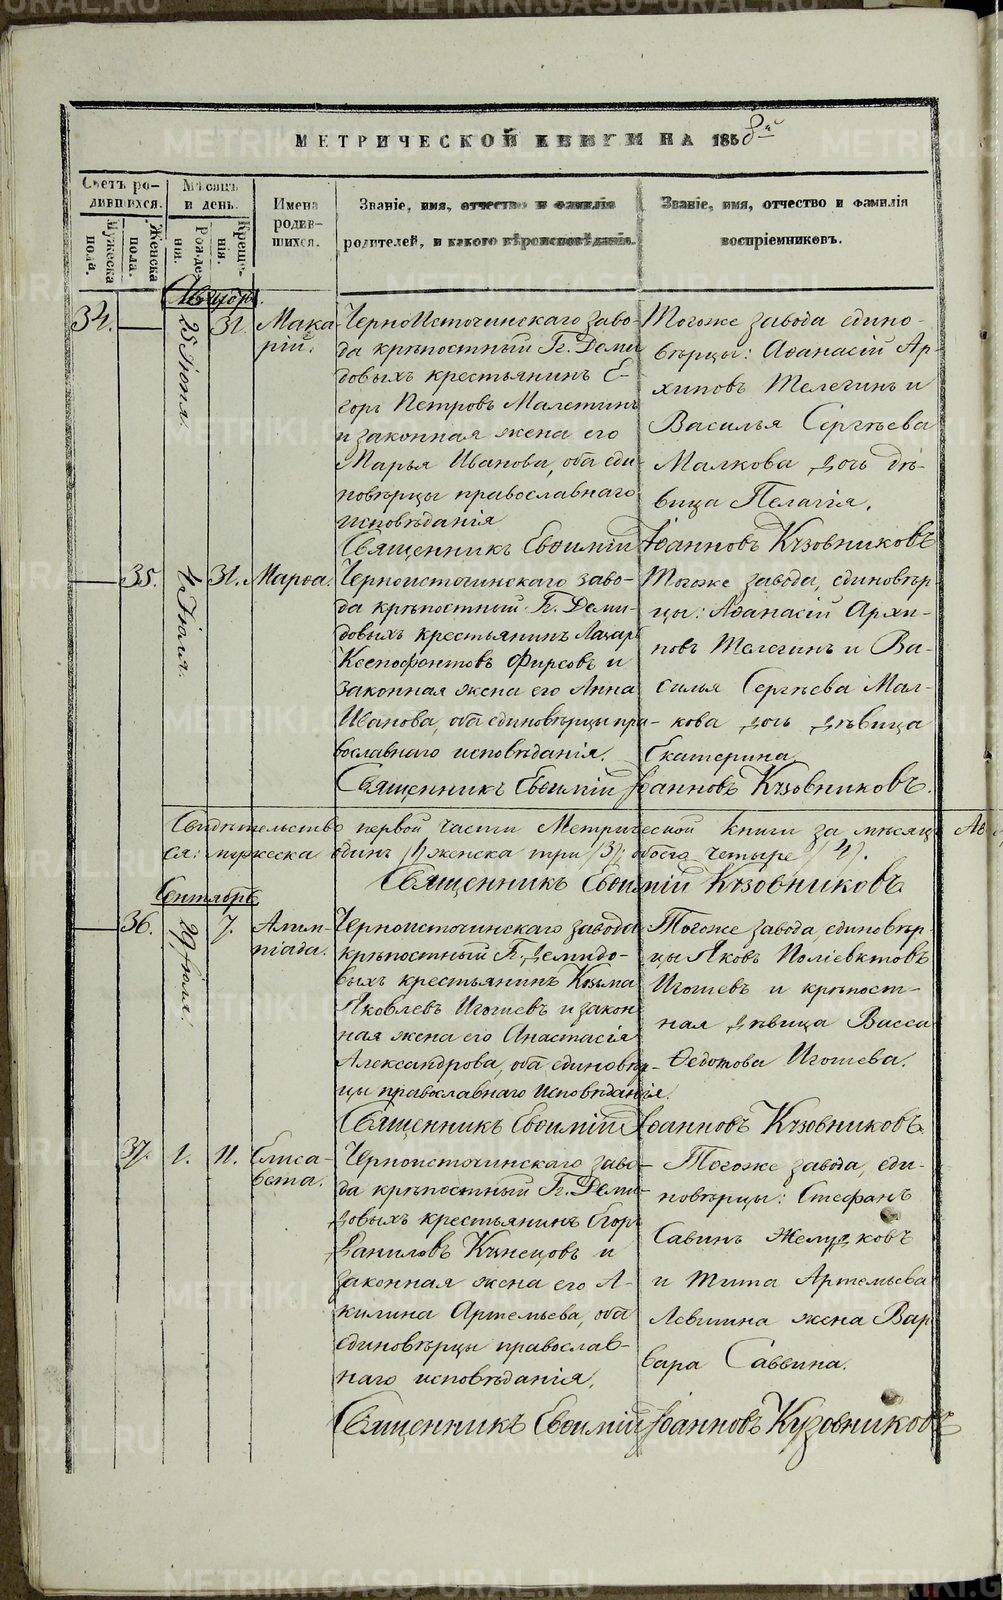 МЕТРИЧЕСКОЙ КНИГИ НА 1858й
Счетъ ро-
дившихся.
Мужеска
пола.
Женска
пола.
Мѣсяцъ
и день.
Рожде-
нія.
Креще-
нія.
Имена
родив-
шихся.
Званіе, имя, отчество и фамилія
родителей, и какого вѣроисповѣданія.
Званіе, имя, отчество и фамилія
воспріемниковъ.
34.
25 Іюня.
31.
Мака
рій.
ЧерноИсточинскаго заво-
да крѣпостный Гг. Деми
довыхъ крестьянинъ Е-
горъ Петровъ Малетинъ
и законная жена его
Марья Иванова, оба еди-
новѣрцы православнаго
исповѣданія
Тогоже завода едино-
вѣрцы: Аѳанасій Ар-
хиповъ Телегинъ и
Василья Сергѣева
Малкова дочь дѣ-
вица Пелагія.
Священникъ Евѳимій Іоанновъ Кузовниковъ
35.
4 Іюля.
31.
Марѳа.
Черноисточинскаго заво-
да крѣпостный Гг. Деми-
довыхъ крестьянинъ Лазарь
Ксенофонтовъ Фирсовъ и
законная жена его Анна
Иванова, оба единовѣрцы пра-
вославнаго исповѣданія.
Тогоже завода, единовѣр-
цы: Аѳанасій Архи-
повъ Телегинъ и Ва-
силья Сергѣева Мал-
кова дочь дѣвица
Екатерина.
Священникъ Евѳимій Іоанновъ Кузовниковъ.
Свидѣтельство первой части Метрической книги за мѣсяцъ
ся: мужеска одинъ /1/ женска три /3/; обоего четыре /4/.
Священникъ Евѳимій Кузовниковъ
Сентябрь
36.
29 Іюля.
7.
Алим-
піада.
Черноисточинскаго завода
крѣпостный Г. Демидо-
выхъ крестьянинъ Козьма
Яковлевъ Игошевъ и закон
ная жена его Анастасія
Александрова, оба единовѣр-
цы православнаго исповѣданія.
Тогоже завода, единовѣр-
цы Яковъ Поліевктовъ
Игошевъ и крѣпост-
ная дѣвица Васса
Ѳедотова Игошева.
Священникъ Евѳимій Іоанновъ Кузовниковъ
37.
1.
11.
Елиса-
вета.
Черноисточинскаго заво-
да крѣпостный Гг. Деми-
довыхъ крестьянинъ Егоръ
Даниловъ Кузнецовъ и
законная жена его А-
килина Артемьева, оба
единовѣрцы православ-
наго исповѣданія.
Тогоже завода, еди-
новѣрцы: Стефанъ
Савинъ Желудковъ
и Тита Артемьева
Левшина жена Вар
вара Саввина.
Священникъ Евѳимій Іоанновъ Кузовниковъ